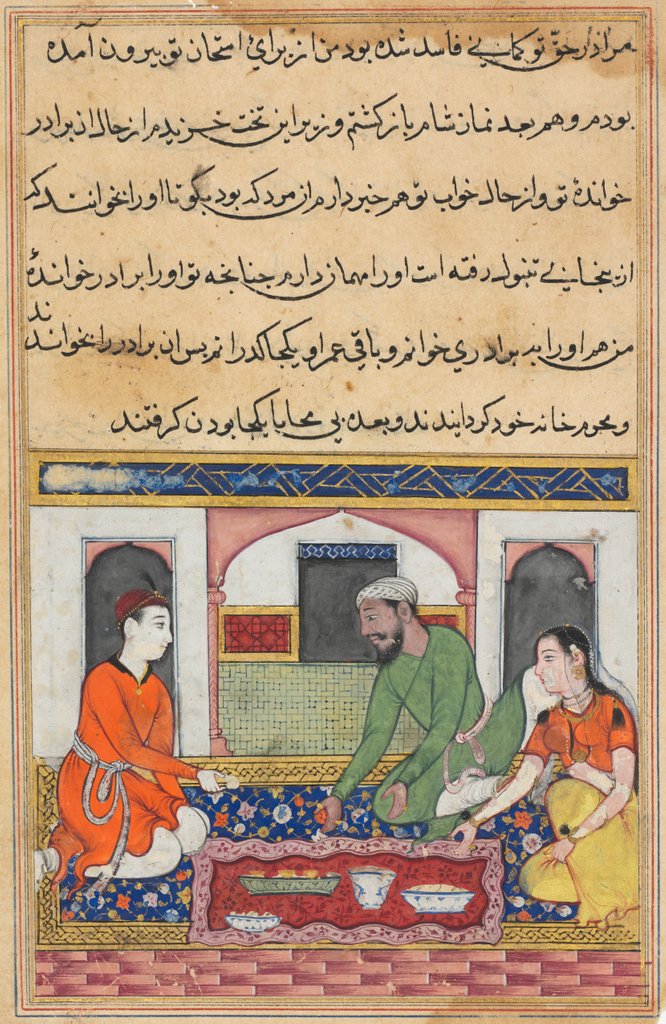 مرا در حق تو کمانی فاسد شده بود من از برای امتحان تو بیرون آمده
بودم و هم بعد نماز شام باز کشتم و زیر این تخت خزیدم از حال از برادر
خواندهٔ تو و از حال خواب تو هم خبر دارم از مرد که بود بگو تا او را بخوانند که
از بیخانی رفته است او را مهمان دارم جنانجه تو او را برادر خواندهٔ
من هم او را بد برادری خوانم و باقی عمر او یکجا کدرانم بس ان برادر را بخواندند
و محرم خانه خود کردانیدند و بعده بی محابا یکجا بودن کرفتند